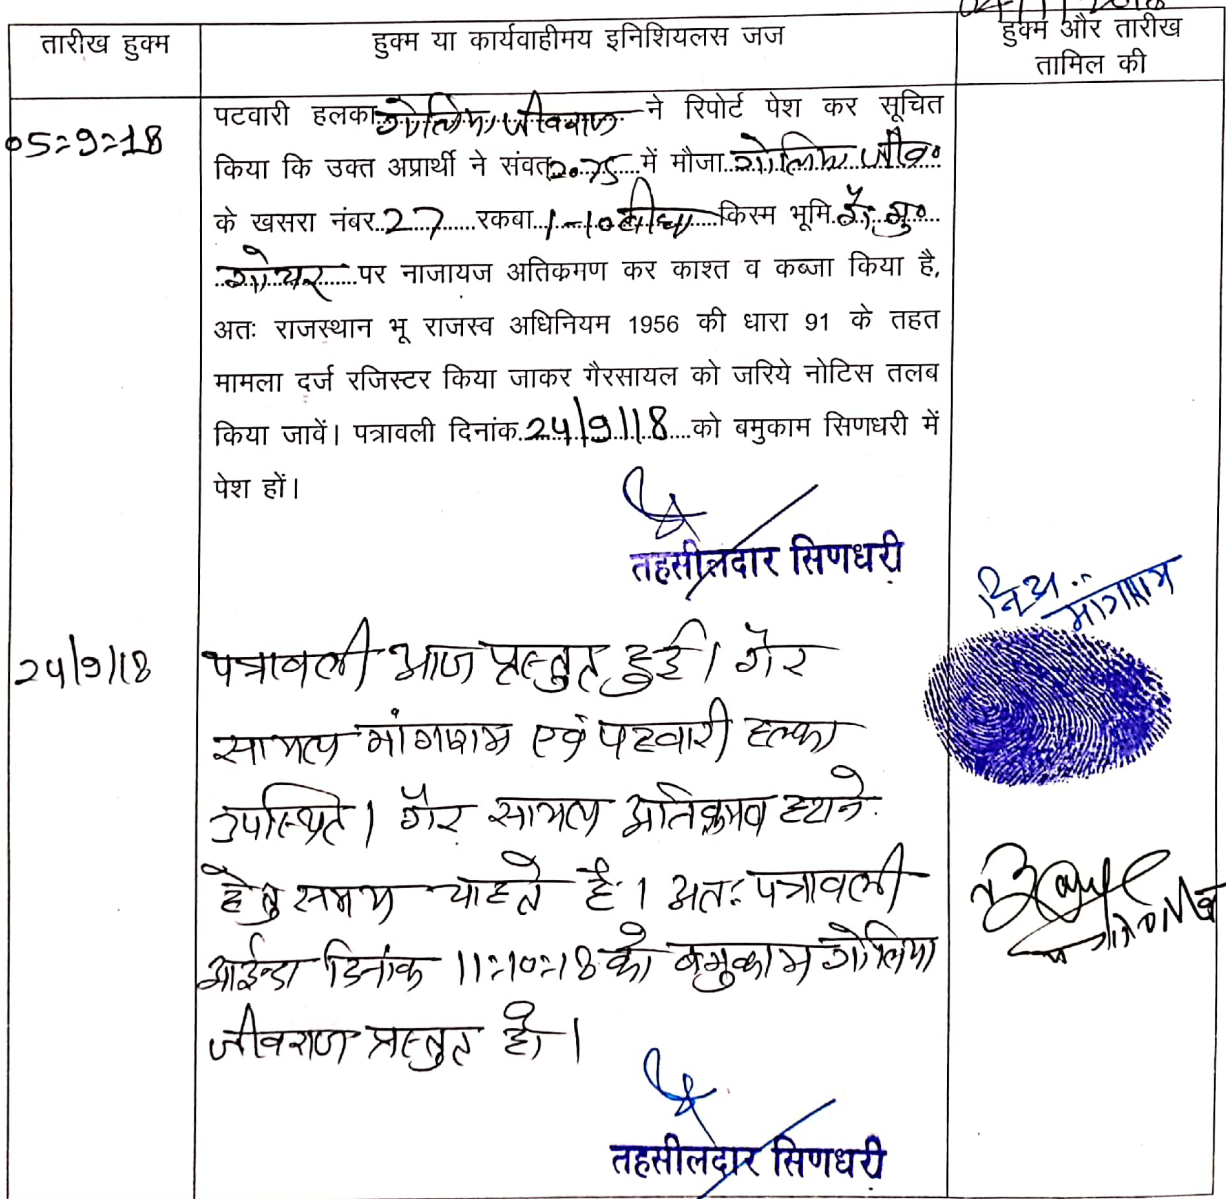 तारीख हुक्म
हुक्म या कार्यवाहीमय इनिशियलस जज
हुक्म और तारीख
तामिल की
05=9=18
पटवारी हलका गोलिया जीवराज ने रिपोर्ट पेश कर सूचित
किया कि उक्त अप्रार्थी ने संवत 2075 में मौजा गोलिया जीव०
के खसरा नंबर 27 रकबा 1-10 बीघा किस्म भूमि गै.मु०
गोचर पर नाजायज अतिक्रमण कर काश्त व कब्जा किया है,
अतः राजस्थान भू राजस्व अधिनियम 1956 की धारा 91 के तहत
मामला दर्ज रजिस्टर किया जाकर गैरसायल को जरिये नोटिस तलब
किया जावें। पत्रावली दिनांक 24/9/18 को बमुकाम सिणधरी में
पेश हों।
तहसीलदार सिणधरी
24/9/18
पत्रावली आज प्रस्तुत हुई। गैर
सायल मांगाराम एवं पटवारी हल्का
उपस्थित। गैर सायल अतिक्रमण हटाने
हेतु समय चाहते है। अतः पत्रावली
आईन्दा दिनांक 11=10=18 को बमुकाम गोलिया
जीवराज प्रस्तुत हो।
मांगाराम
तहसीलदार सिणधरी